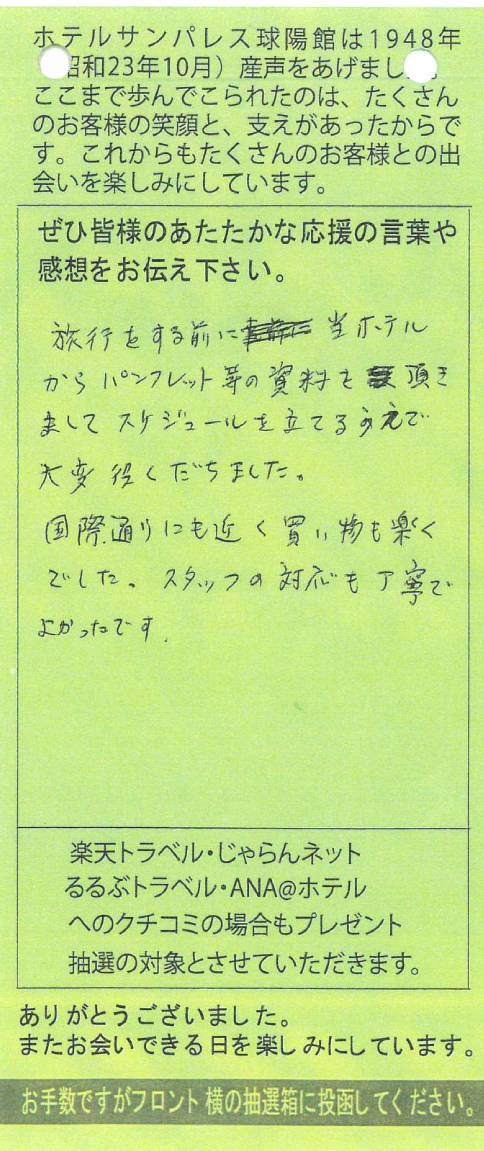 ホテルサンパレス球陽館は1948年
昭和23年10月）産声をあげまし
ここまで歩んでこられたのは、たくさん
のお客様の笑顔と、支えがあったからで
す。これからもたくさんのお客様との出
会いを楽しみにしています。
ぜひ皆様のあたたかな応援の言葉や
感想をお伝え下さい。
旅行をする前に 当ホテル
からパンフレット等の資料を 頂き
ましてスケジュールを立てるうえで
大変役くだちました。
国際通りにも近く買い物も楽く
でした。スタッフの対応も丁寧で
よかったです.
楽天トラベル・じゃらんネット
るるぶトラベル・ANA@ホテル
へのクチコミの場合もプレゼント
抽選の対象とさせていただきます。
ありがとうございました。
またお会いできる日を楽しみにしています。
お手数ですがフロント横の抽選箱に投函してください。